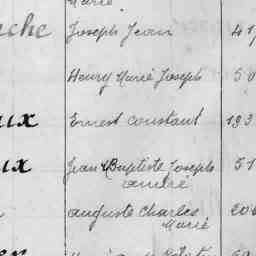 Marie
che Joseph Jean 41
Henry Marie Joseph 50
ux Ernest Constant 193
ux Jean Baptiste Joseph 51
andré
auguste Charles 206
Marié